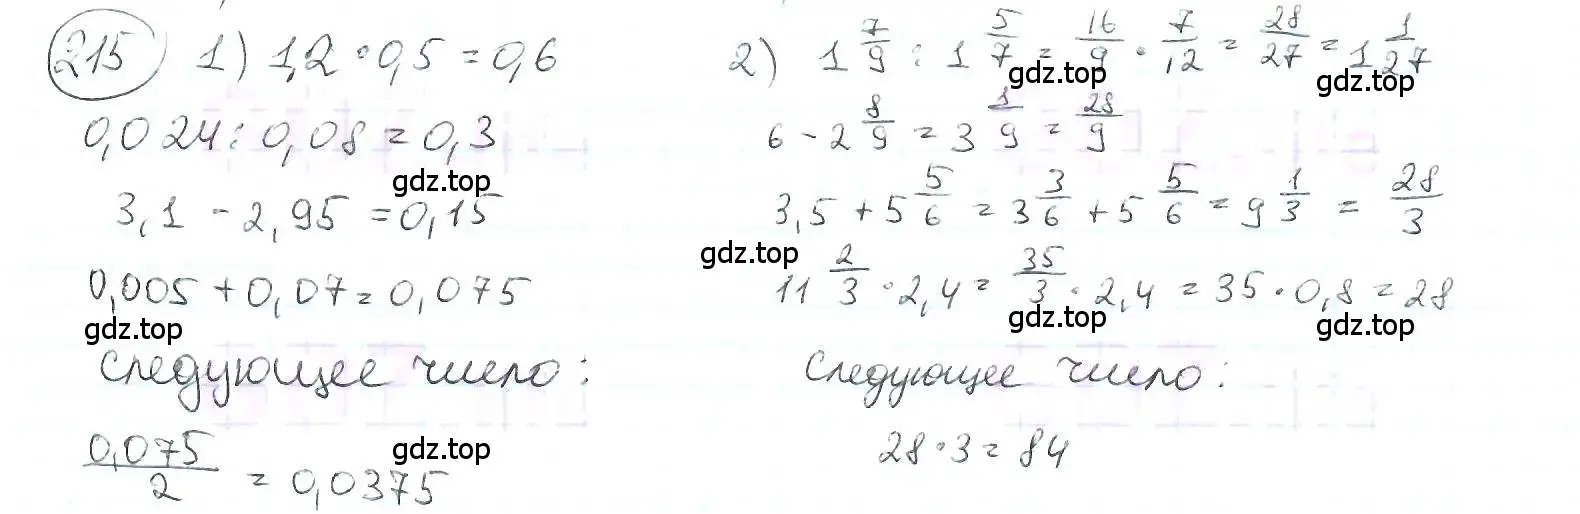 215 1) 1,2 · 0,5 = 0,6
0,024 : 0,08 = 0,3
gdz.top
3,1 - 2,95 = 0,15
0,005 + 0,07 = 0,075
gdz.top
следующее число:
0,075/2 = 0,0375
gdz.top
2) 1 7/9 : 1 5/7 = 16/9 · 7/12 = 28/27 = 1 1/27
gdz.top
gdz.top
6 - 2 8/9 = 3 1/9 = 28/9
3,5 + 5 5/6 = 3 3/6 + 5 5/6 = 9 1/3 = 28/3
gdz.top
11 2/3 · 2,4 = 35/3 · 2,4 = 35 · 0,8 = 28
gdz.top
gdz.top
следующее число:
28 · 3 = 84